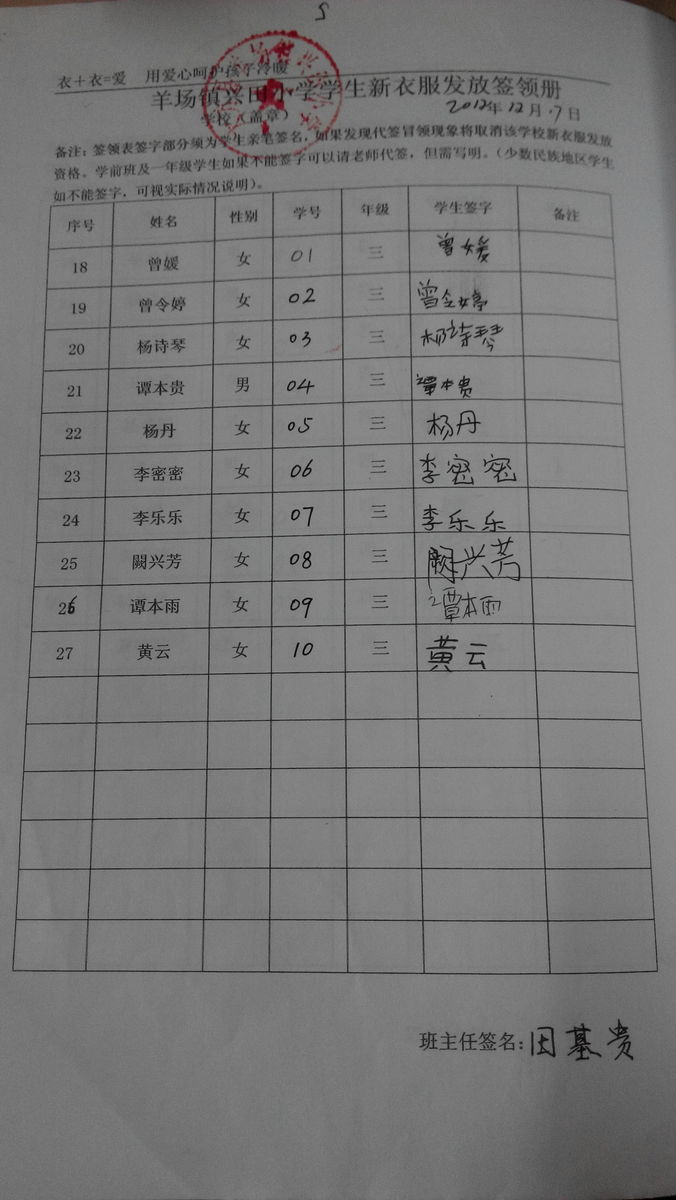 5
衣+衣=爱 用爱心呵护孩子冷暖
羊场镇兴田小学学生新衣服发放签领册
学校（盖章） 2012年12月.7日
备注：签领表签字部分须为学生亲笔签名，如果发现代签冒领现象将取消该学校新衣服发放
资格。学前班及一年级学生如果不能签字可以请老师代签，但需写明。（少数民族地区学生
如不能签字，可视实际情况说明）。
序号 姓名 性别 学号 年级 学生签字 备注
18 曾媛 女 01 三 曾媛
19 曾令婷 女 02 三 曾令婷
20 杨诗琴 女 03 三 杨诗琴
21 谭本贵 男 04 三 谭本贵
22 杨丹 女 05 三 杨丹
23 李密密 女 06 三 李密密
24 李乐乐 女 07 三 李乐乐
25 阙兴芳 女 08 三 阙兴芳
26 谭本雨 女 09 三 谭本雨
27 黄云 女 10 三 黄云
班主任签名：田基贵